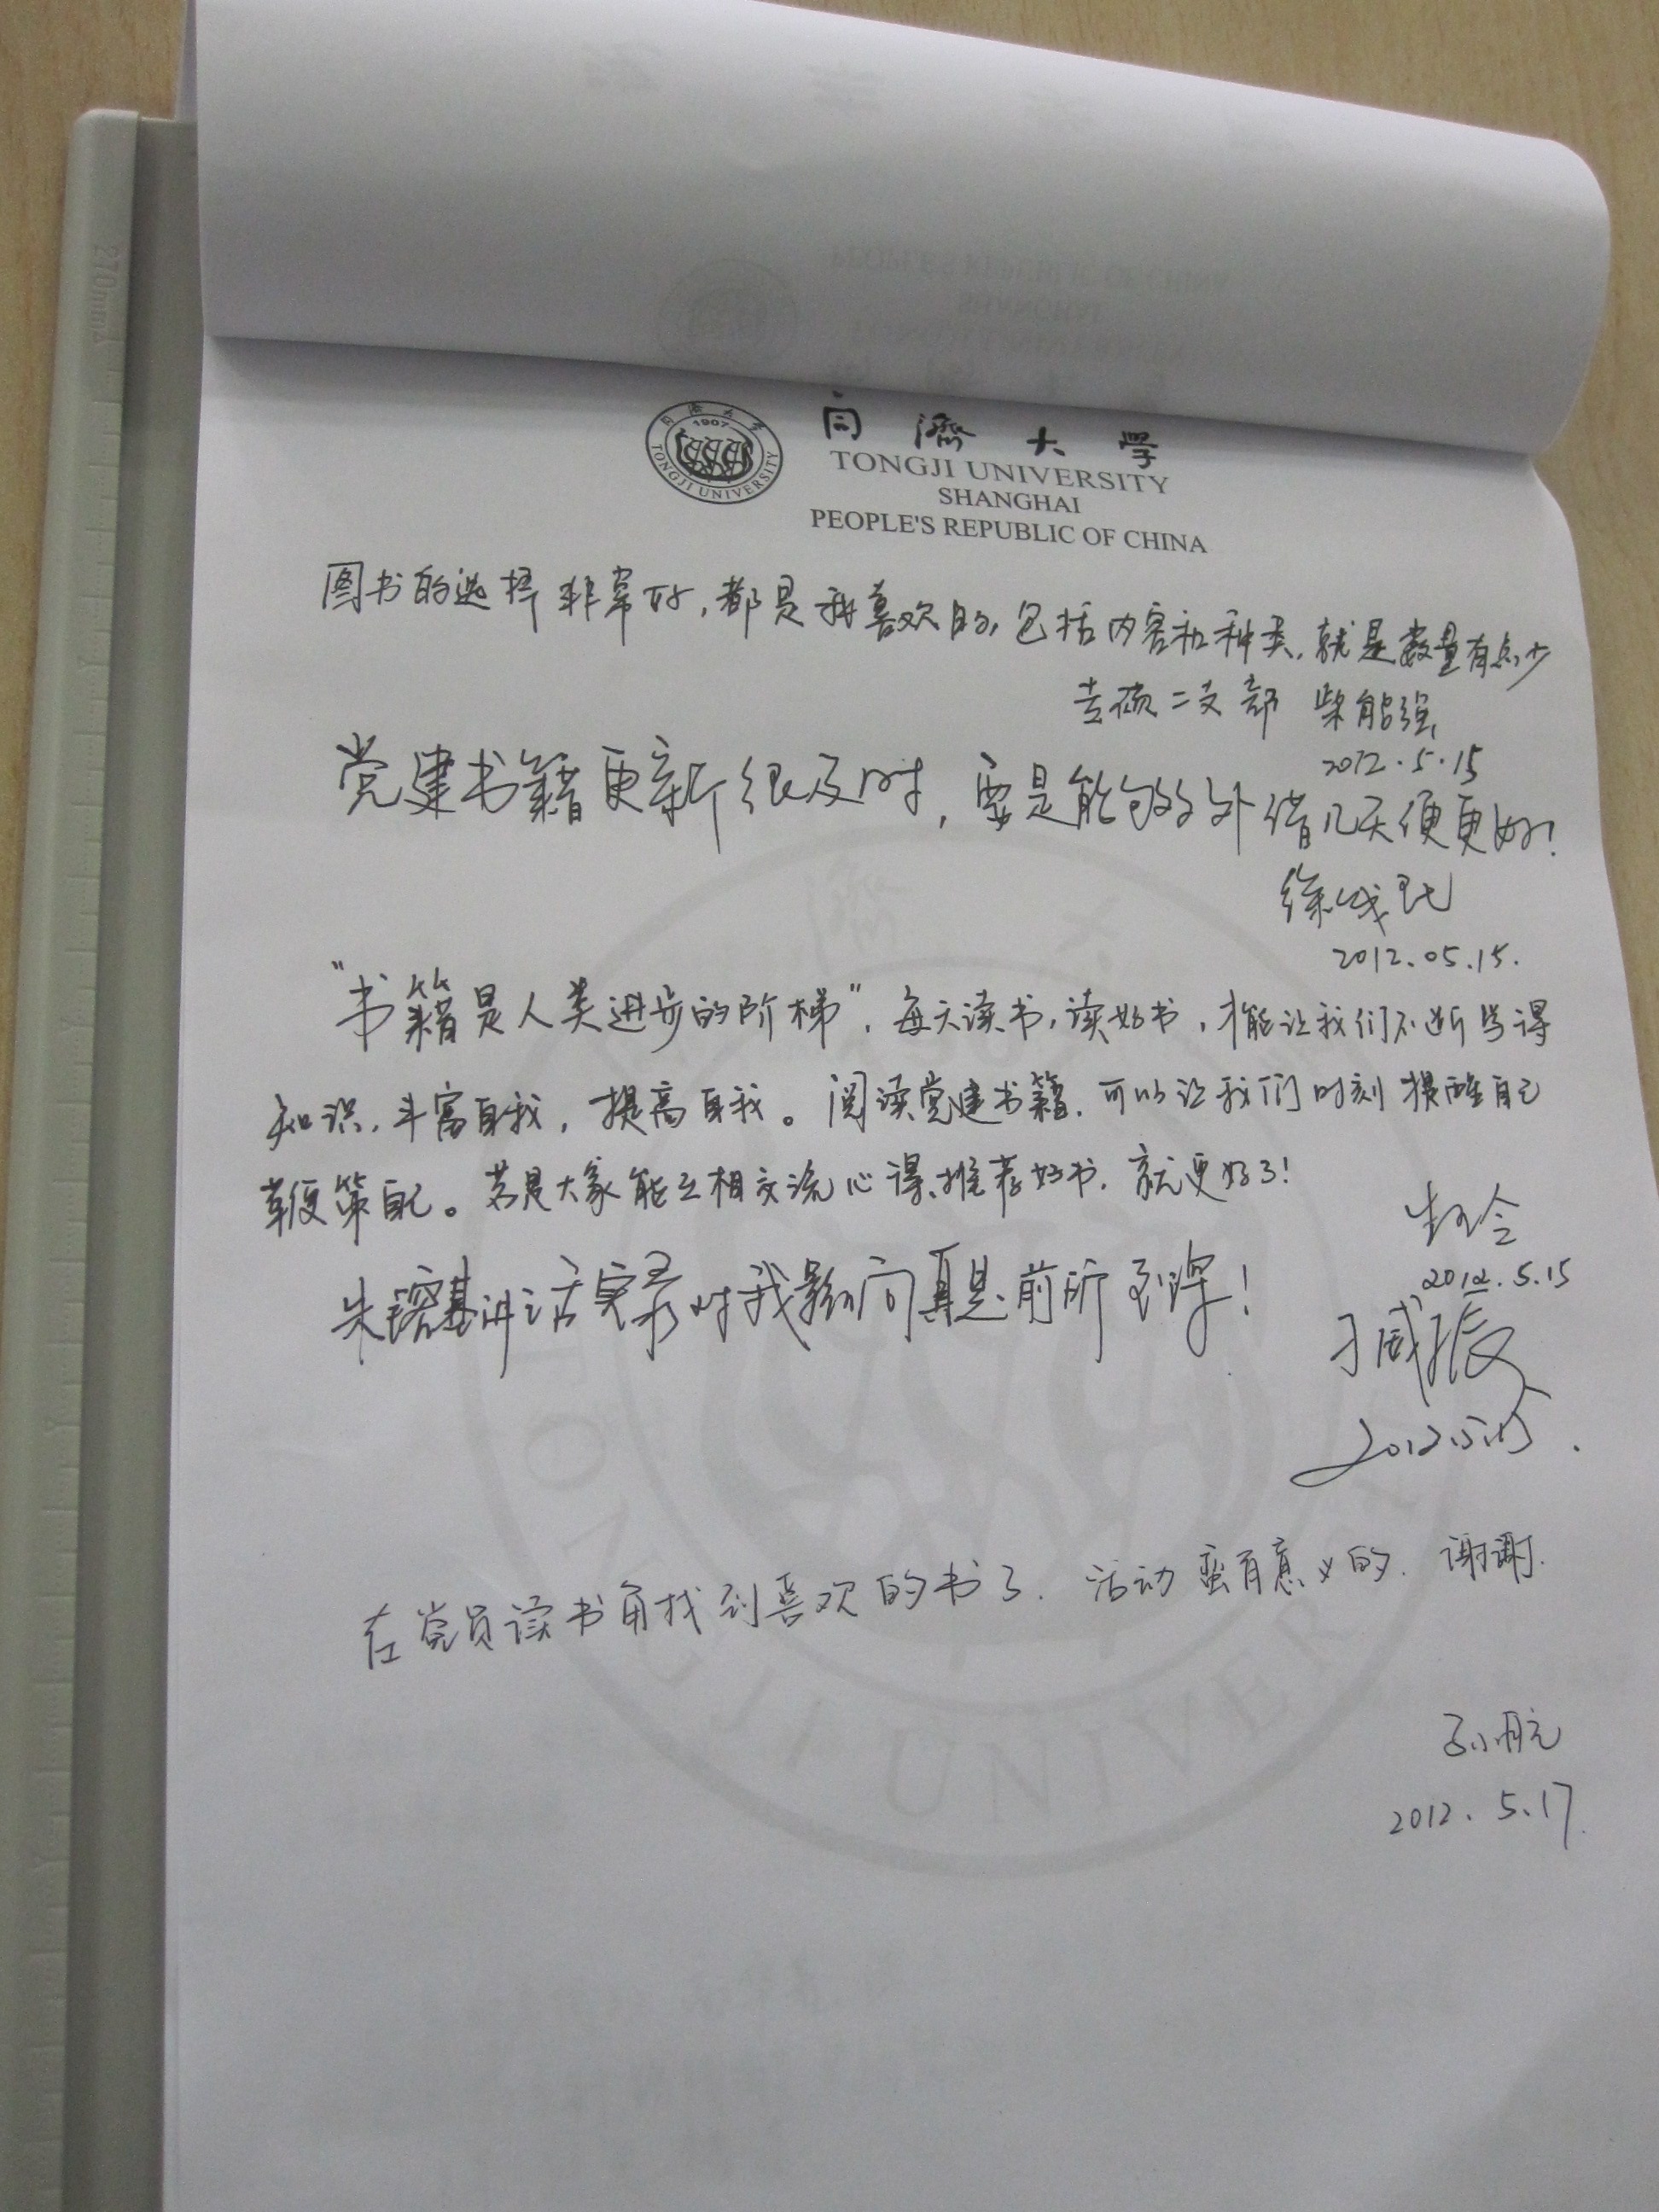 同濟大學
1907
TONGJI UNIVERSITY
TONGJI UNIVERSITY
SHANGHAI
PEOPLE'S REPUBLIC OF CHINA
图书的选择非常好,都是我喜欢的,包括内容和种类,就是数量有点少
专硕二支部 柴能强
2012.5.15
党建书籍更新很及时,要是能够外借几天便更好!
徐
2012.05.15.
"书籍是人类进步的阶梯",每天读书,读好书,才能让我们不断学得
知识,丰富自我,提高自我。阅读党建书籍,可以让我们时刻提醒自己
鞭策自己。若是大家能互相交流心得、推荐好书,就更好了!
2012.5.15
朱镕基讲话实录对我影响真是前所
2012.5.15.
在党员读书角找到喜欢的书了.活动蛮有意义的.谢谢.
孙小航
2012.5.17.
TONGJI UNIVERSITY
270mm